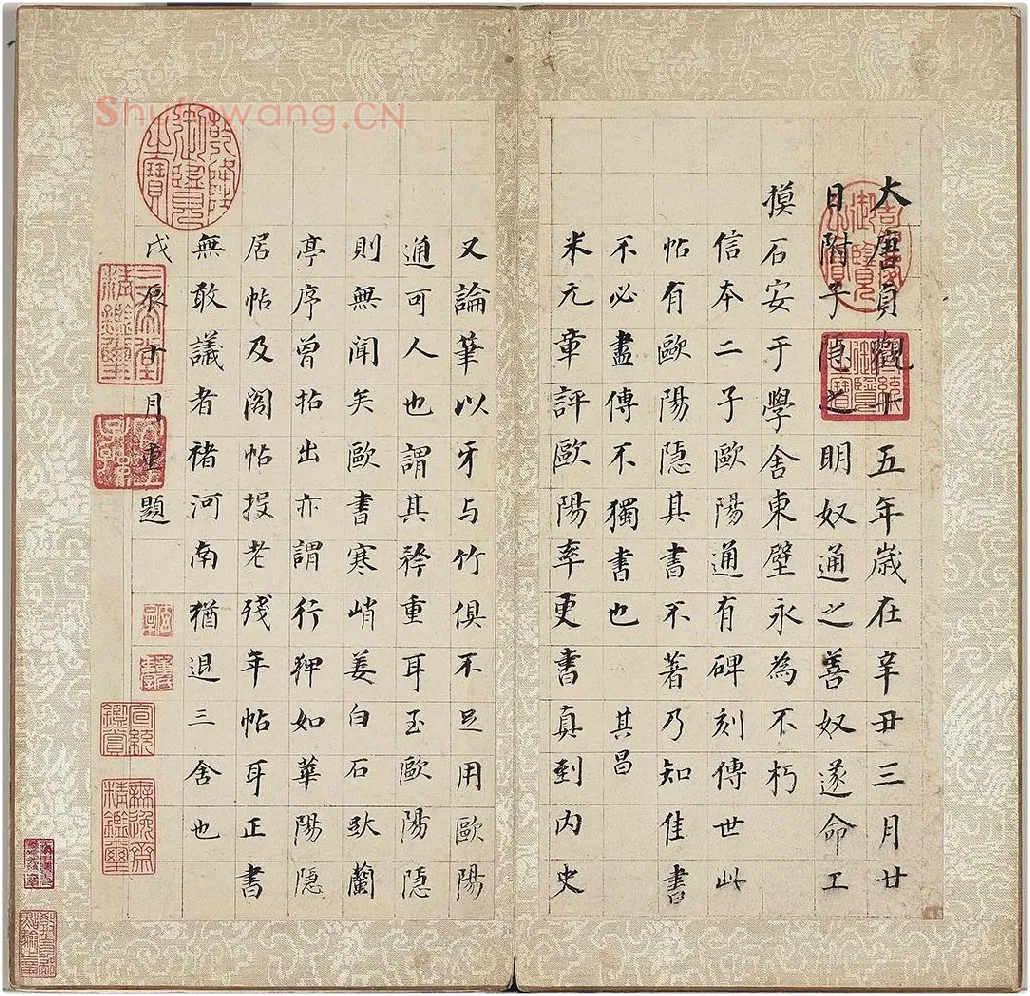 大唐貞觀十五年歲在辛丑三月廿
日附子隱之明奴通之善奴遂命工
摸石安于學舍東壁永為不朽
信本二子歐陽通有碑刻傳世此
帖有歐陽隱其書不著乃知佳書
不必盡傳不獨書也 其昌
米元章評歐陽率更書真到内史
又論筆以牙与竹俱不足用歐陽
通可人也謂其矜重耳至歐陽隱
則無聞矣歐書寒峭姜白石跋蘭
亭序曾拈出亦謂行狎如華陽隱
居帖及閣帖投老殘年帖耳正書
無敢議者褚河南猶退三舍也
戊辰十月重題
嘉慶御覽之寶
宣統御覽之寶
乾隆御覽之寶
三希堂精鑑璽
宜子孫
宣統鑑賞
無逸齋精鑑璽
Shufawang.CN